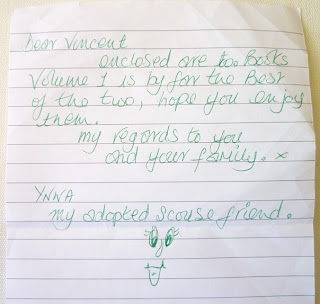 Dear Vincent
enclosed are too Books
Volume 1 is by for the Best
of the two, hope you enjoy
them.
my regards to you
and your family. x
YNWA
my adopted scouse friend.